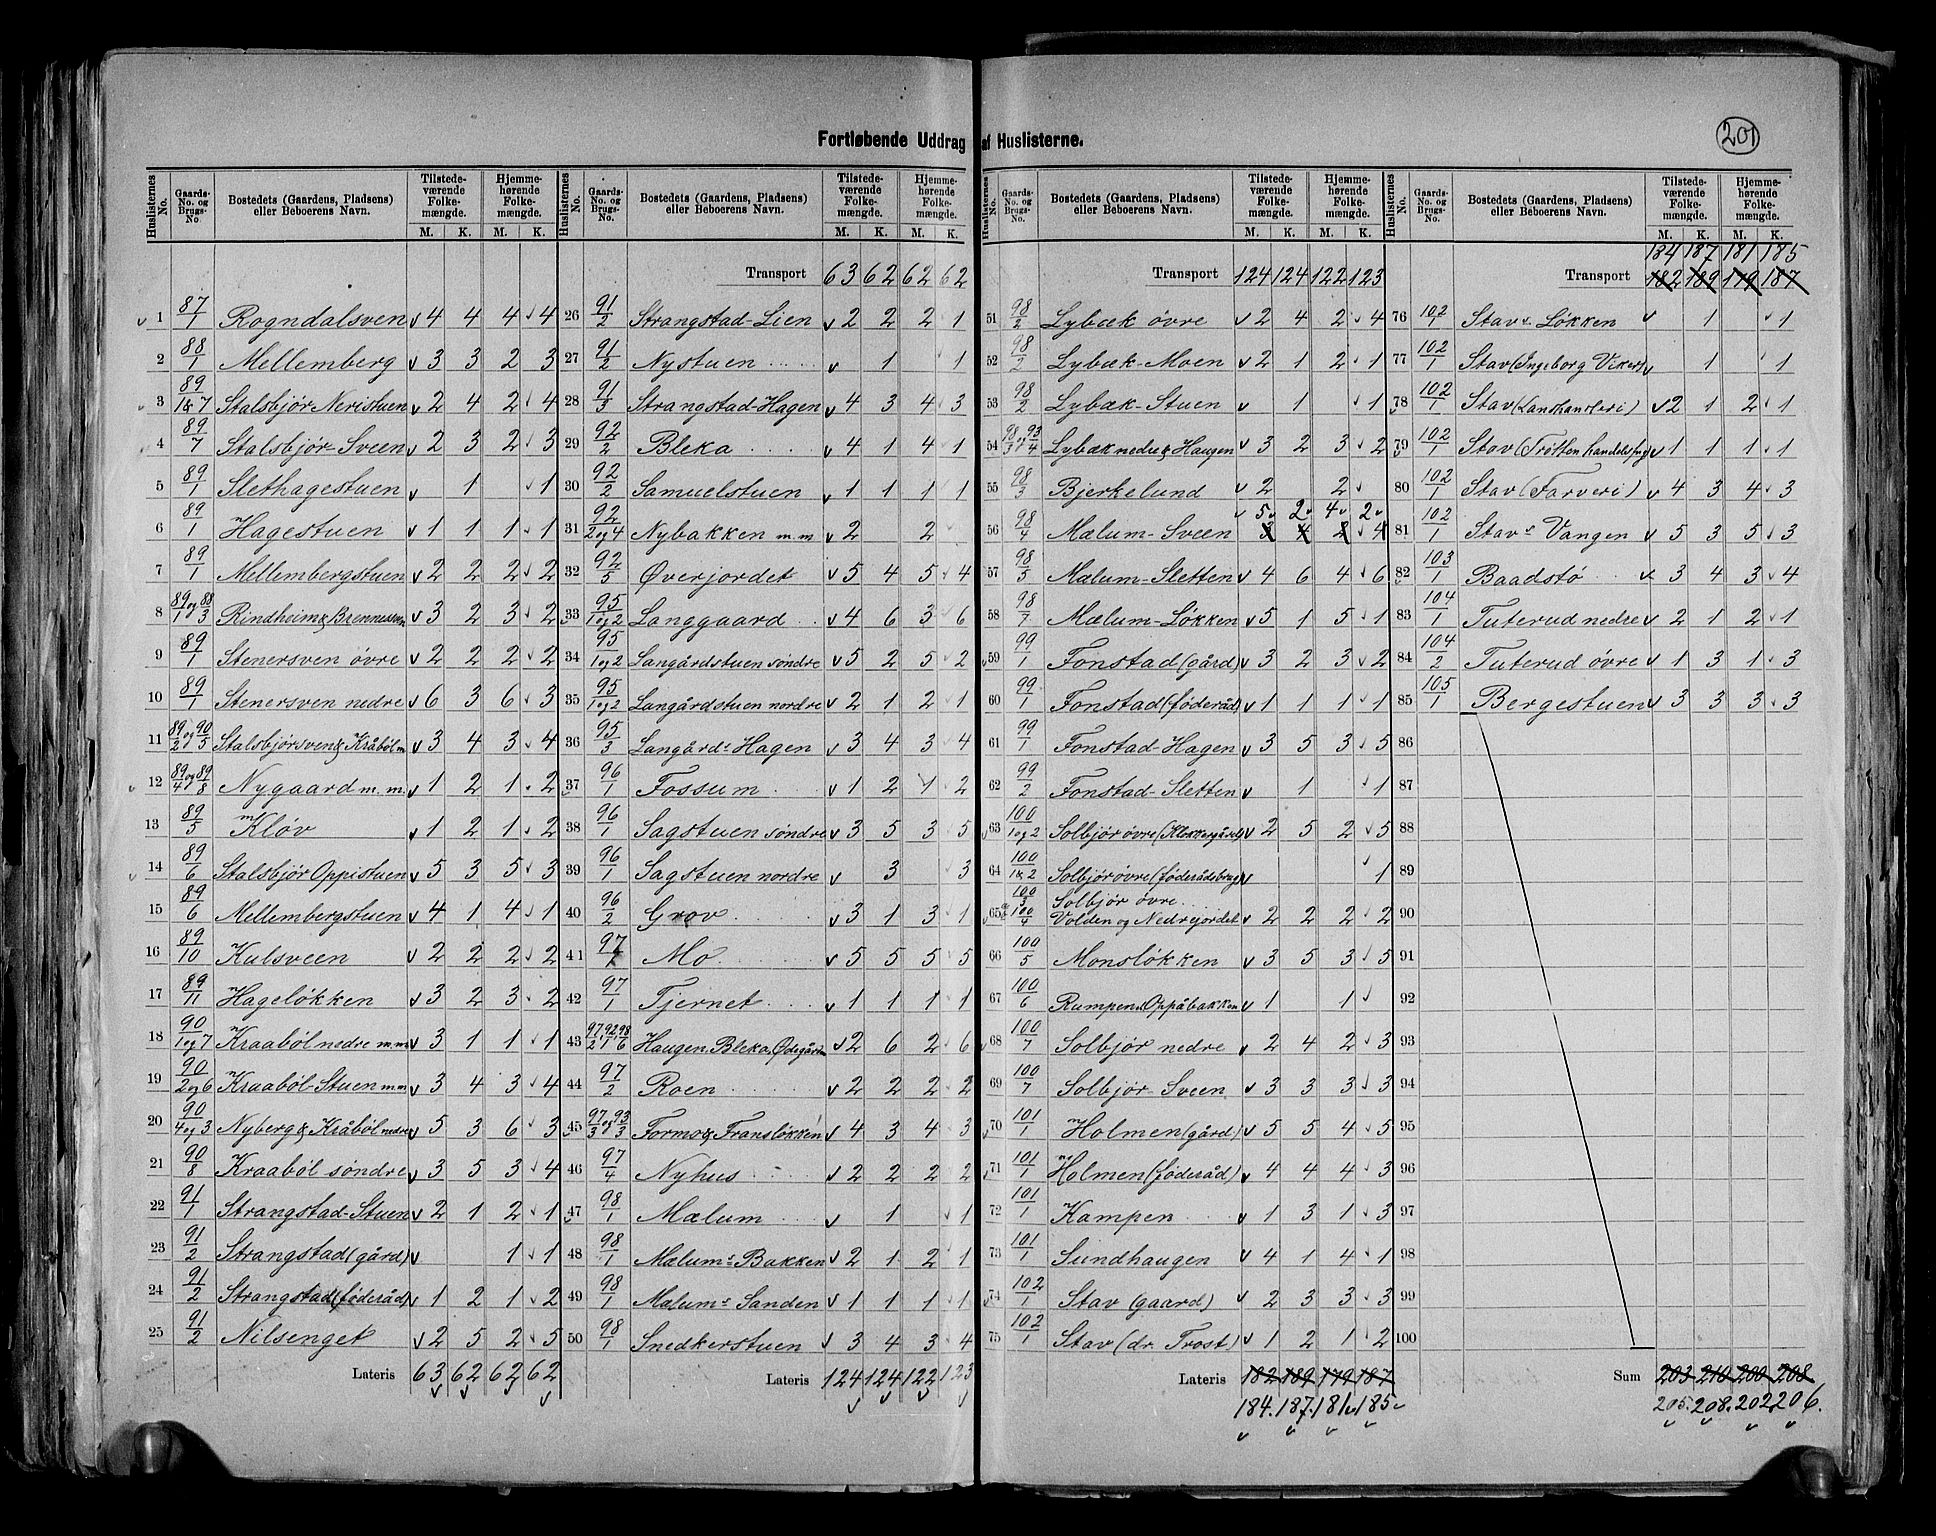 Fortløbende Uddrag af Huslisterne.
201
Huslisternes No. | Gaards-No. og Brugs-No | Bostedets (Gaardens, Pladsens) eller Beboerens Navn. | Tilstedeværende Folkemængde. M. K. | Hjemmehørende Folkemængde. M. K.
1 87/1 Rogndalsven 4 4 4 4
2 88/1 Mellemberg 3 3 2 3
3 89/1&7 Stalsbjør Neristuen 2 4 2 4
4 89/7 Stalsbjør-Sveen 2 3 2 3
5 89/1 Slethagestuen 1 1
6 89/1 Hagestuen 1 1 1 1
7 89/1 Mellembergstuen 2 2 2 2
8 89/1 og 88/3 Rindheim & Brennesven 3 2 3 2
9 89/1 Stenersven øvre 2 2 2 2
10 89/1 Stenersven nedre 6 3 6 3
11 89/2 og 90/5 Stalsbjørsven & Kråböl m 3 4 3 4
12 89/4 og 89/8 Nygaard m. m. 1 2 1 2
13 89/5 Kløv 1 2 1 2
14 89/6 Stalsbjør Oppistuen 5 3 5 3
15 89/6 Mellembergstuen 4 1 4 1
16 89/10 Kulsveen 2 2 2 2
17 89/11 Hageløkken 3 2 3 2
18 90/1 og 7 Kraaböl nedre m.m 3 1 1 1
19 90/2 og 6 Kraaböl-Stuen m.m 3 4 3 4
20 90/4 og 3 Nyberg & Kråböl nedre 5 3 6 3
21 90/8 Kraaböl søndre 3 5 3 4
22 91/1 Strangstad-Stuen 2 1 2 1
23 91/2 Strangstad (gård) 1 1
24 91/2 Strangstad (føderåd) 1 2 1 2
25 91/2 Nilsenget 2 5 2 5
Lateris 63 62 62 62
Huslisternes No. | Gaards-No. og Brugs-No. | Bostedets (Gaardens, Pladsens) eller Beboerens Navn. | Tilstedeværende Folkemængde. M. K. | Hjemmehørende Folkemængde. M. K.
Transport 63 62 62 62
26 91/2 Strangstad-Lien 2 2 2 1
27 91/2 Nystuen 1 1
28 91/3 Strangstad-Hagen 4 3 4 3
29 92/2 Bleka 4 1 4 1
30 92/2 Samuelstuen 1 1 1 1
31 92/2 og 4 Nybakken m.m 2 2
32 92/5 Øverjordet 5 4 5 4
33 95/1 og 2 Langgaard 4 6 3 6
34 95/1 og 2 Langårdstuen søndre 5 2 5 2
35 95/1 og 2 Langårdstuen nordre 2 1 2 1
36 95/3 Langårds Hagen 3 4 3 4
37 96/1 Fossum 1 2 1 2
38 96/1 Sagstuen søndre 3 5 3 5
39 96/1 Sagstuen nordre 3 3
40 96/2 Grov 3 1 3 1
41 97/1 Mo 5 5 5 5
42 97/1 Tjernet 1 1 1 1
43 97/2 92/1 98/6 Haugen, Bleka, Ødegården 2 6 2 6
44 97/2 Roen 2 2 2 2
45 97/3 og 93/3 Formo & Fransløkken 4 3 4 3
46 97/4 Nyhus 2 2 2 2
47 98/1 Mælum 1 1
48 98/1 Mælums Bakken 2 1 2 1
49 98/1 Mælums Sanden 1 1 1 1
50 98/1 Snedkerstuen 3 4 3 4
Lateris 124 124 122 123
Huslisternes No. | Gaards-No. og Brugs-No. | Bostedets (Gaardens, Pladsens) eller Beboerens Navn. | Tilstedeværende Folkemængde. M. K. | Hjemmehørende Folkemængde. M. K.
Transport 124 124 122 123
51 98/2 Lybæk øvre 2 4 2 4
52 98/2 Lybæk-Moen 2 1 2 1
53 98/2 Lybæk-Stuen 1 1
54 98/3 og 93/4 Lybæk nedre & Haugen 3 2 3 2
55 98/3 Bjerkelund 2 2
5 2 4 2
56 98/4 Mælum-Sveen 3 4 2 4
57 98/5 Mælum-Sletten 4 6 4 6
58 98/7 Mælum-Løkken 5 1 5 1
59 99/1 Fonstad (gård) 3 2 3 2
60 99/1 Fonstad (føderåd) 1 1 1 1
61 99/1 Fonstad-Hagen 3 5 3 5
62 99/2 Fonstad-Sletten 1 1
63 100/1 og 2 Solbjør øvre (Klokkergård) 2 5 2 5
64 100/1&2 Solbjør øvre (føderådsbrug) 1
65 100/3 og 100/4 Solbjør øvre Volden og Nedrejordet 2 2 2 2
66 100/5 Monsløkken 3 5 3 5
67 100/6 Rumpen, Oppåbakken 1 1
68 100/7 Solbjør nedre 2 4 2 3
69 100/7 Solbjør-Sveen 3 3 3 3
70 101/1 Holmen (gård) 5 5 4 5
71 101/1 Holmen (føderåd) 4 4 4 3
72 101/1 Kampen 1 3 1 3
73 101/1 Sundhaugen 4 1 4 1
74 102/1 Stav (gaard) 2 3 3 3
75 102/1 Stav (dr. Trost) 1 2 1 2
Lateris 182 189 179 187
184. 187. 181 185
Huslisternes No. | Gaards-No. og Brugs-No. | Bostedets (Gaardens, Pladsens) eller Beboerens Navn. | Tilstedeværende Folkemængde. M. K. | Hjemmehørende Folkemængde. M. K.
184 187 181 185
Transport 182 189 179 187
76 102/1 Stavs Løkken 1 1
77 102/1 Stav (Ingeborg Viker) 1 1
78 102/1 Stav (Landhandleri) 2 1 2 1
79 102/1 Stav (Trötten handelsfog) 1 1 1 1
80 102/1 Stav (Farveri) 4 3 4 3
81 102/1 Stavs Vangen 5 3 5 3
82 103/1 Baadstø 3 4 3 4
83 104/1 Tuterud nedre 2 1 2 1
84 104/2 Tuterud øvre 1 3 1 3
85 105/1 Bergestuen 3 3 3 3
86
87
88
89
90
91
92
93
94
95
96
97
98
99
100
Sum 203 210 200 208
205. 208. 202 206.